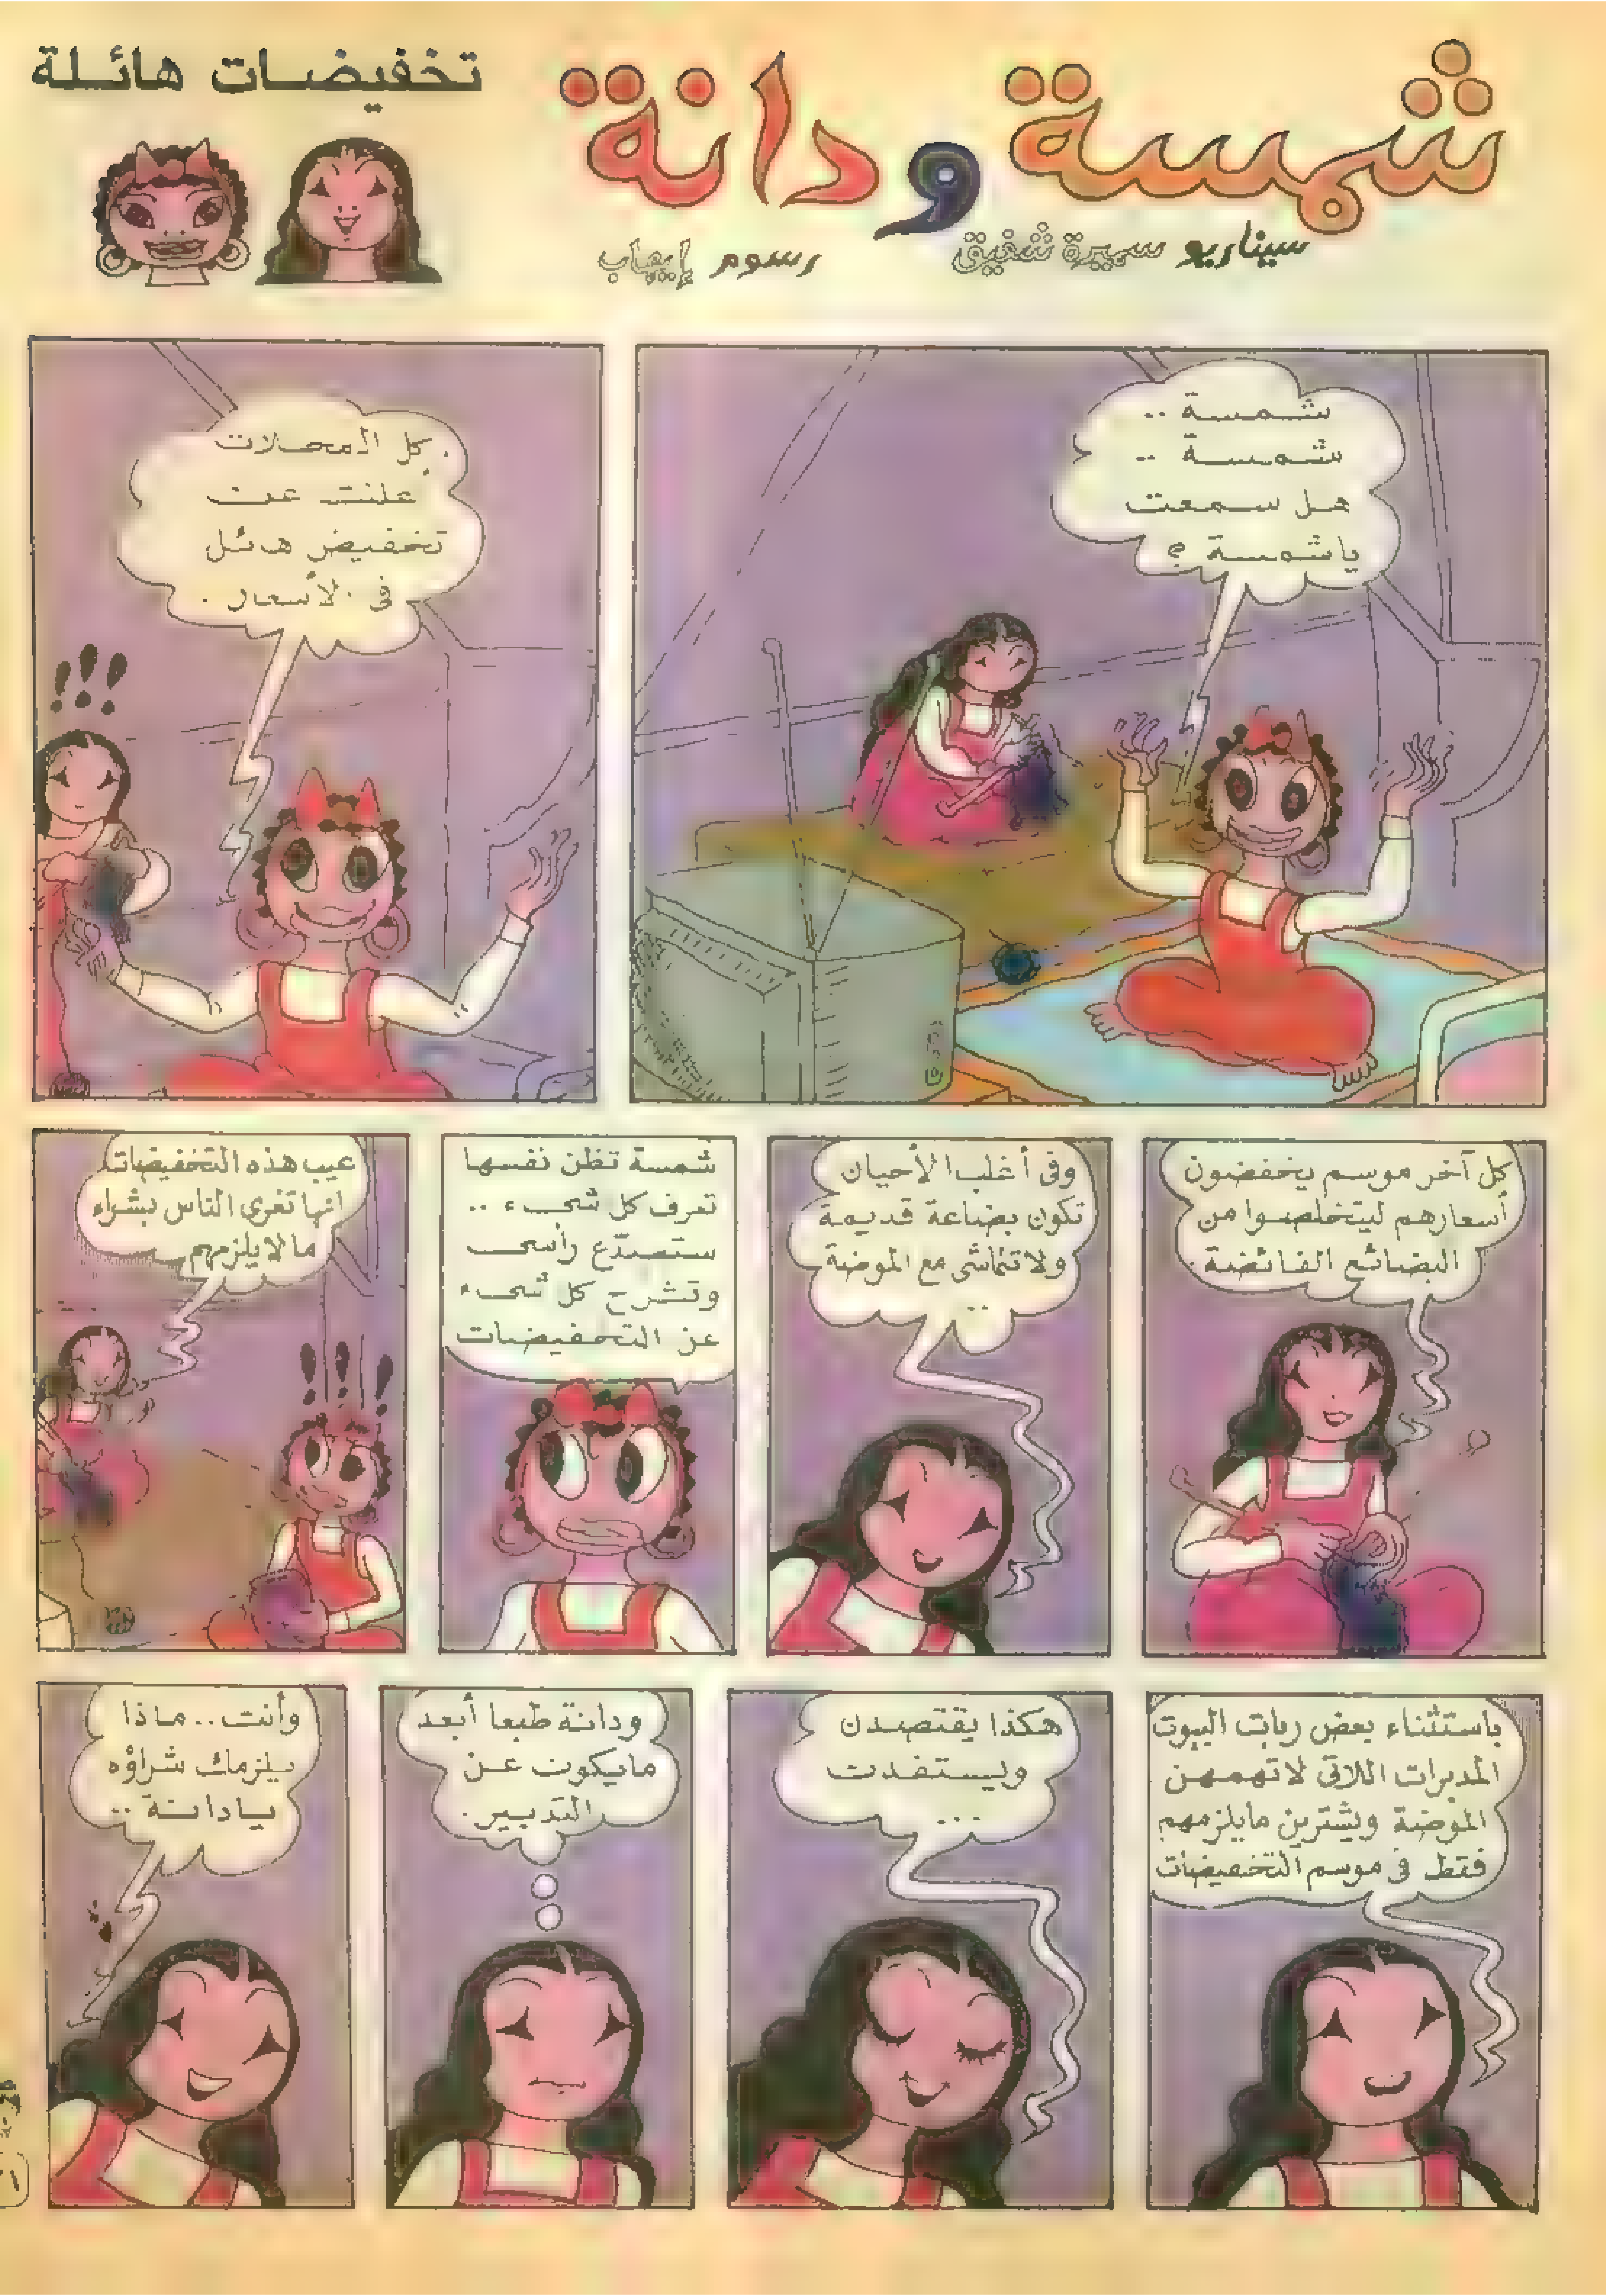 شمسة ودانة
تخفيضات هائلة
سيناريو سميرة شفيق
رسوم إيهاب
شمسة ..
شمسة ..
هل سمعت
ياشمسة ؟
كل المحلات
علنت عن
تخفيض هائل
فى الأسعار .
كل آخر موسم يخفضون
أسعارهم ليتخلصوا من
البضائع الفائضة .
وفى أغلب الأحيان
تكون بضاعة قديمة
ولاتتماشى مع الموضة
..
شمسة تظن نفسها
تعرف كل شىء ..
ستصدّع رأسى
وتشرح كل شىء
عن التخفيضات
عيب هذه التخفيضات
انها تغرى الناس بشراء
مالايلزمهم
باستثناء بعض ربات البيوت
المدبرات اللاتى لاتهمهن
الموضة ويشترين مايلزمهم
فقط فى موسم التخفيضات
هكذا يقتصدن
وليستفدن
...
ودانة طبعا أبعد
مايكون عن
التدبير .
وأنت .. ماذا
يلزمك شراؤه
يادانة ..